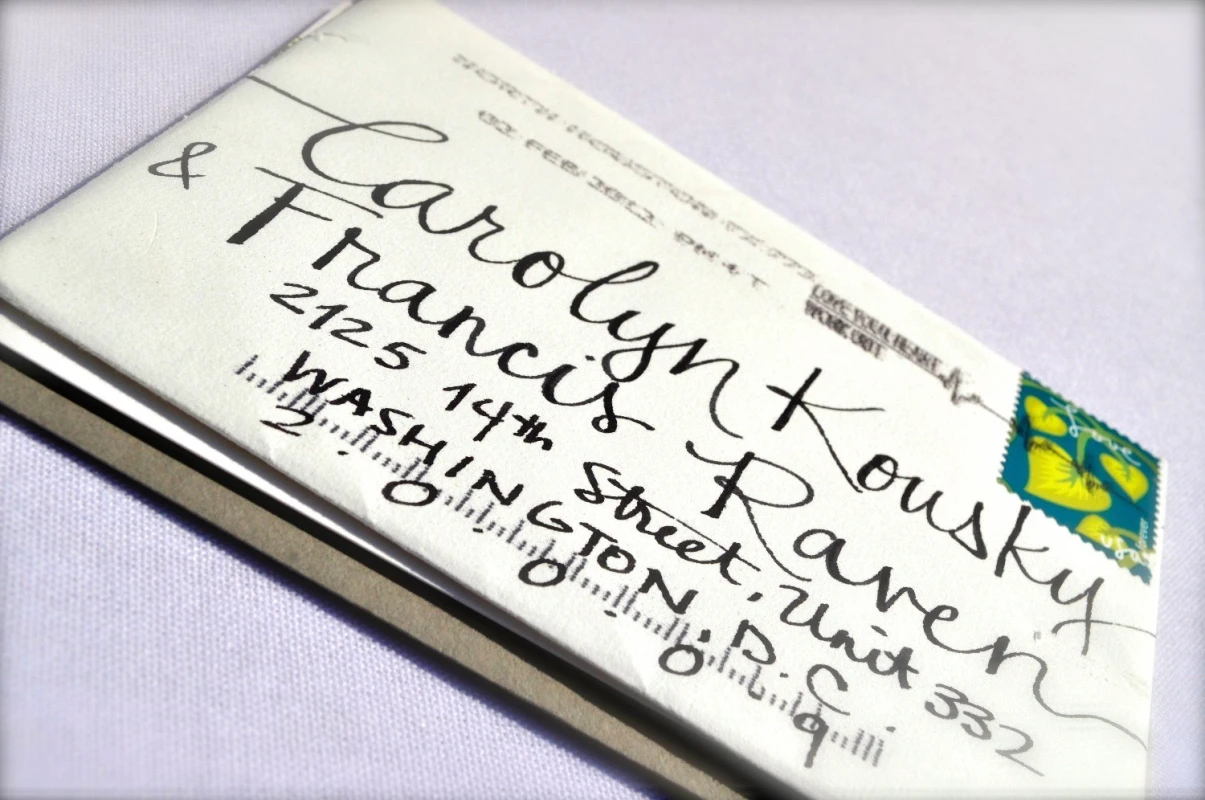 NORTH HOUSTON TX 773
02 FEB 2012 PM 4 T
LOVE YOUR HEART
Love
forever
usa
Carolyn Kousky
& Francis Raven
2125 14th Street, Unit 332
WASHINGTON, D.C.
2 . 0 . 0 . 0 . 9